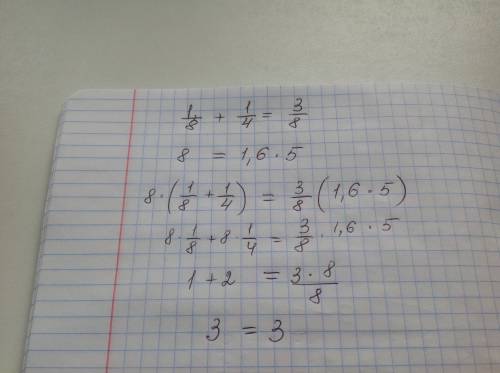 1/8 + 1/4 = 3/8
8 = 1,6 · 5
8 · (1/8 + 1/4) = 3/8 (1,6 · 5)
8 · 1/8 + 8 · 1/4 = 3/8 · 1,6 · 5
1 + 2 = 3 · 8/8
3 = 3